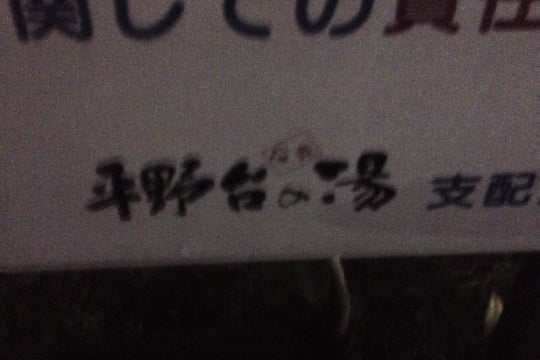 関しての責任
平野台の湯 支配